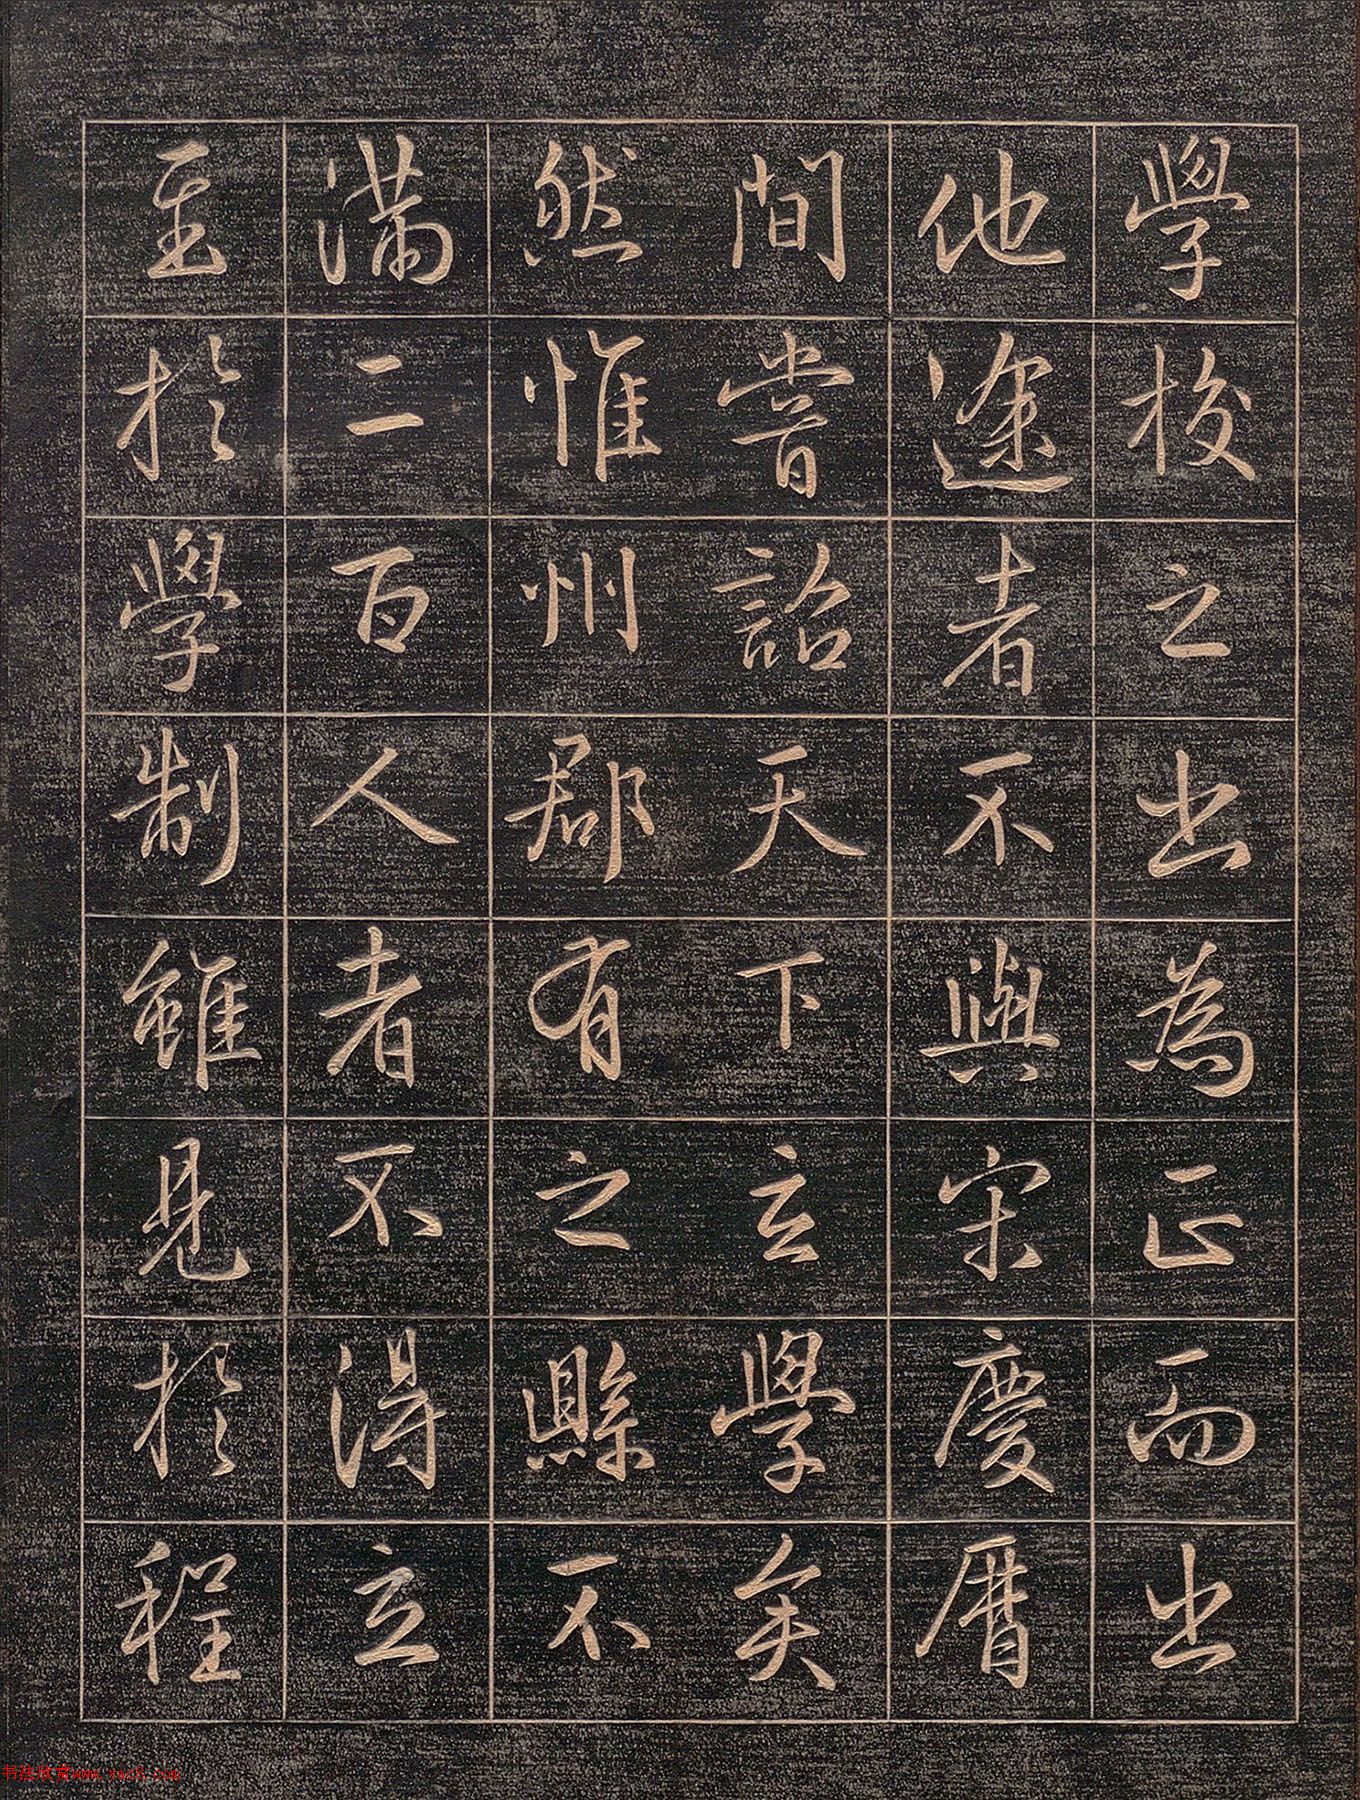 學校之出為正而出
他途者不與宋慶曆
間嘗詔天下立學矣
然惟州郡有之縣不
滿二百人者不得立
至於學制雖見於程
书法欣赏www.yac8.com